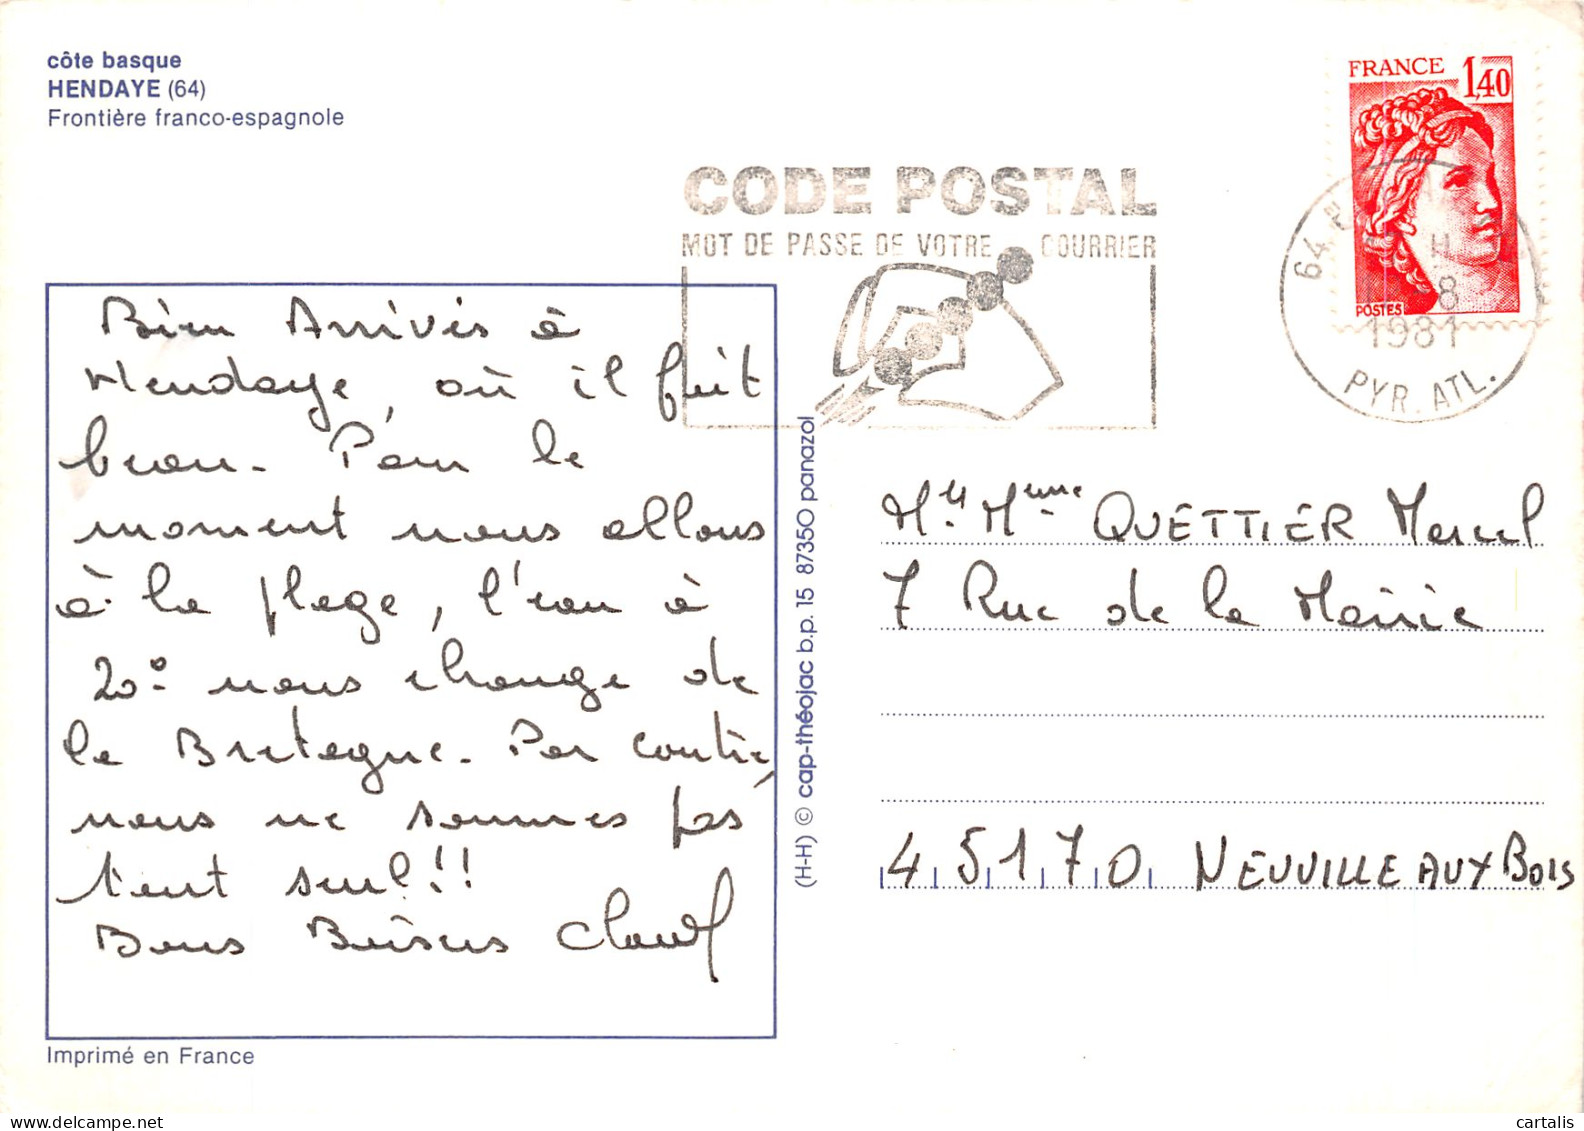 côte basque
HENDAYE (64)
Frontière franco-espagnole
FRANCE 1,40
POSTES
CODE POSTAL
MOT DE PASSE DE VOTRE COURRIER
64
H
-8
1981
PYR. ATL.
Bien Arrivés à
Hendaye, où il fait
beau. Pour le
moment nous allons
à la plage, l'eau à
20° nous change de
la Bretagne. Par contre,
nous ne sommes pas
tout seul!!
Bons Baisers Claud
Imprimé en France
(H-H) © cap-théojac b.p. 15 87350 panazol
Mr et Mme QUETTIER Marcel
7 Rue de la Mairie
45170 NEUVILLE AUX BOIS
cartalis
delcampe.net